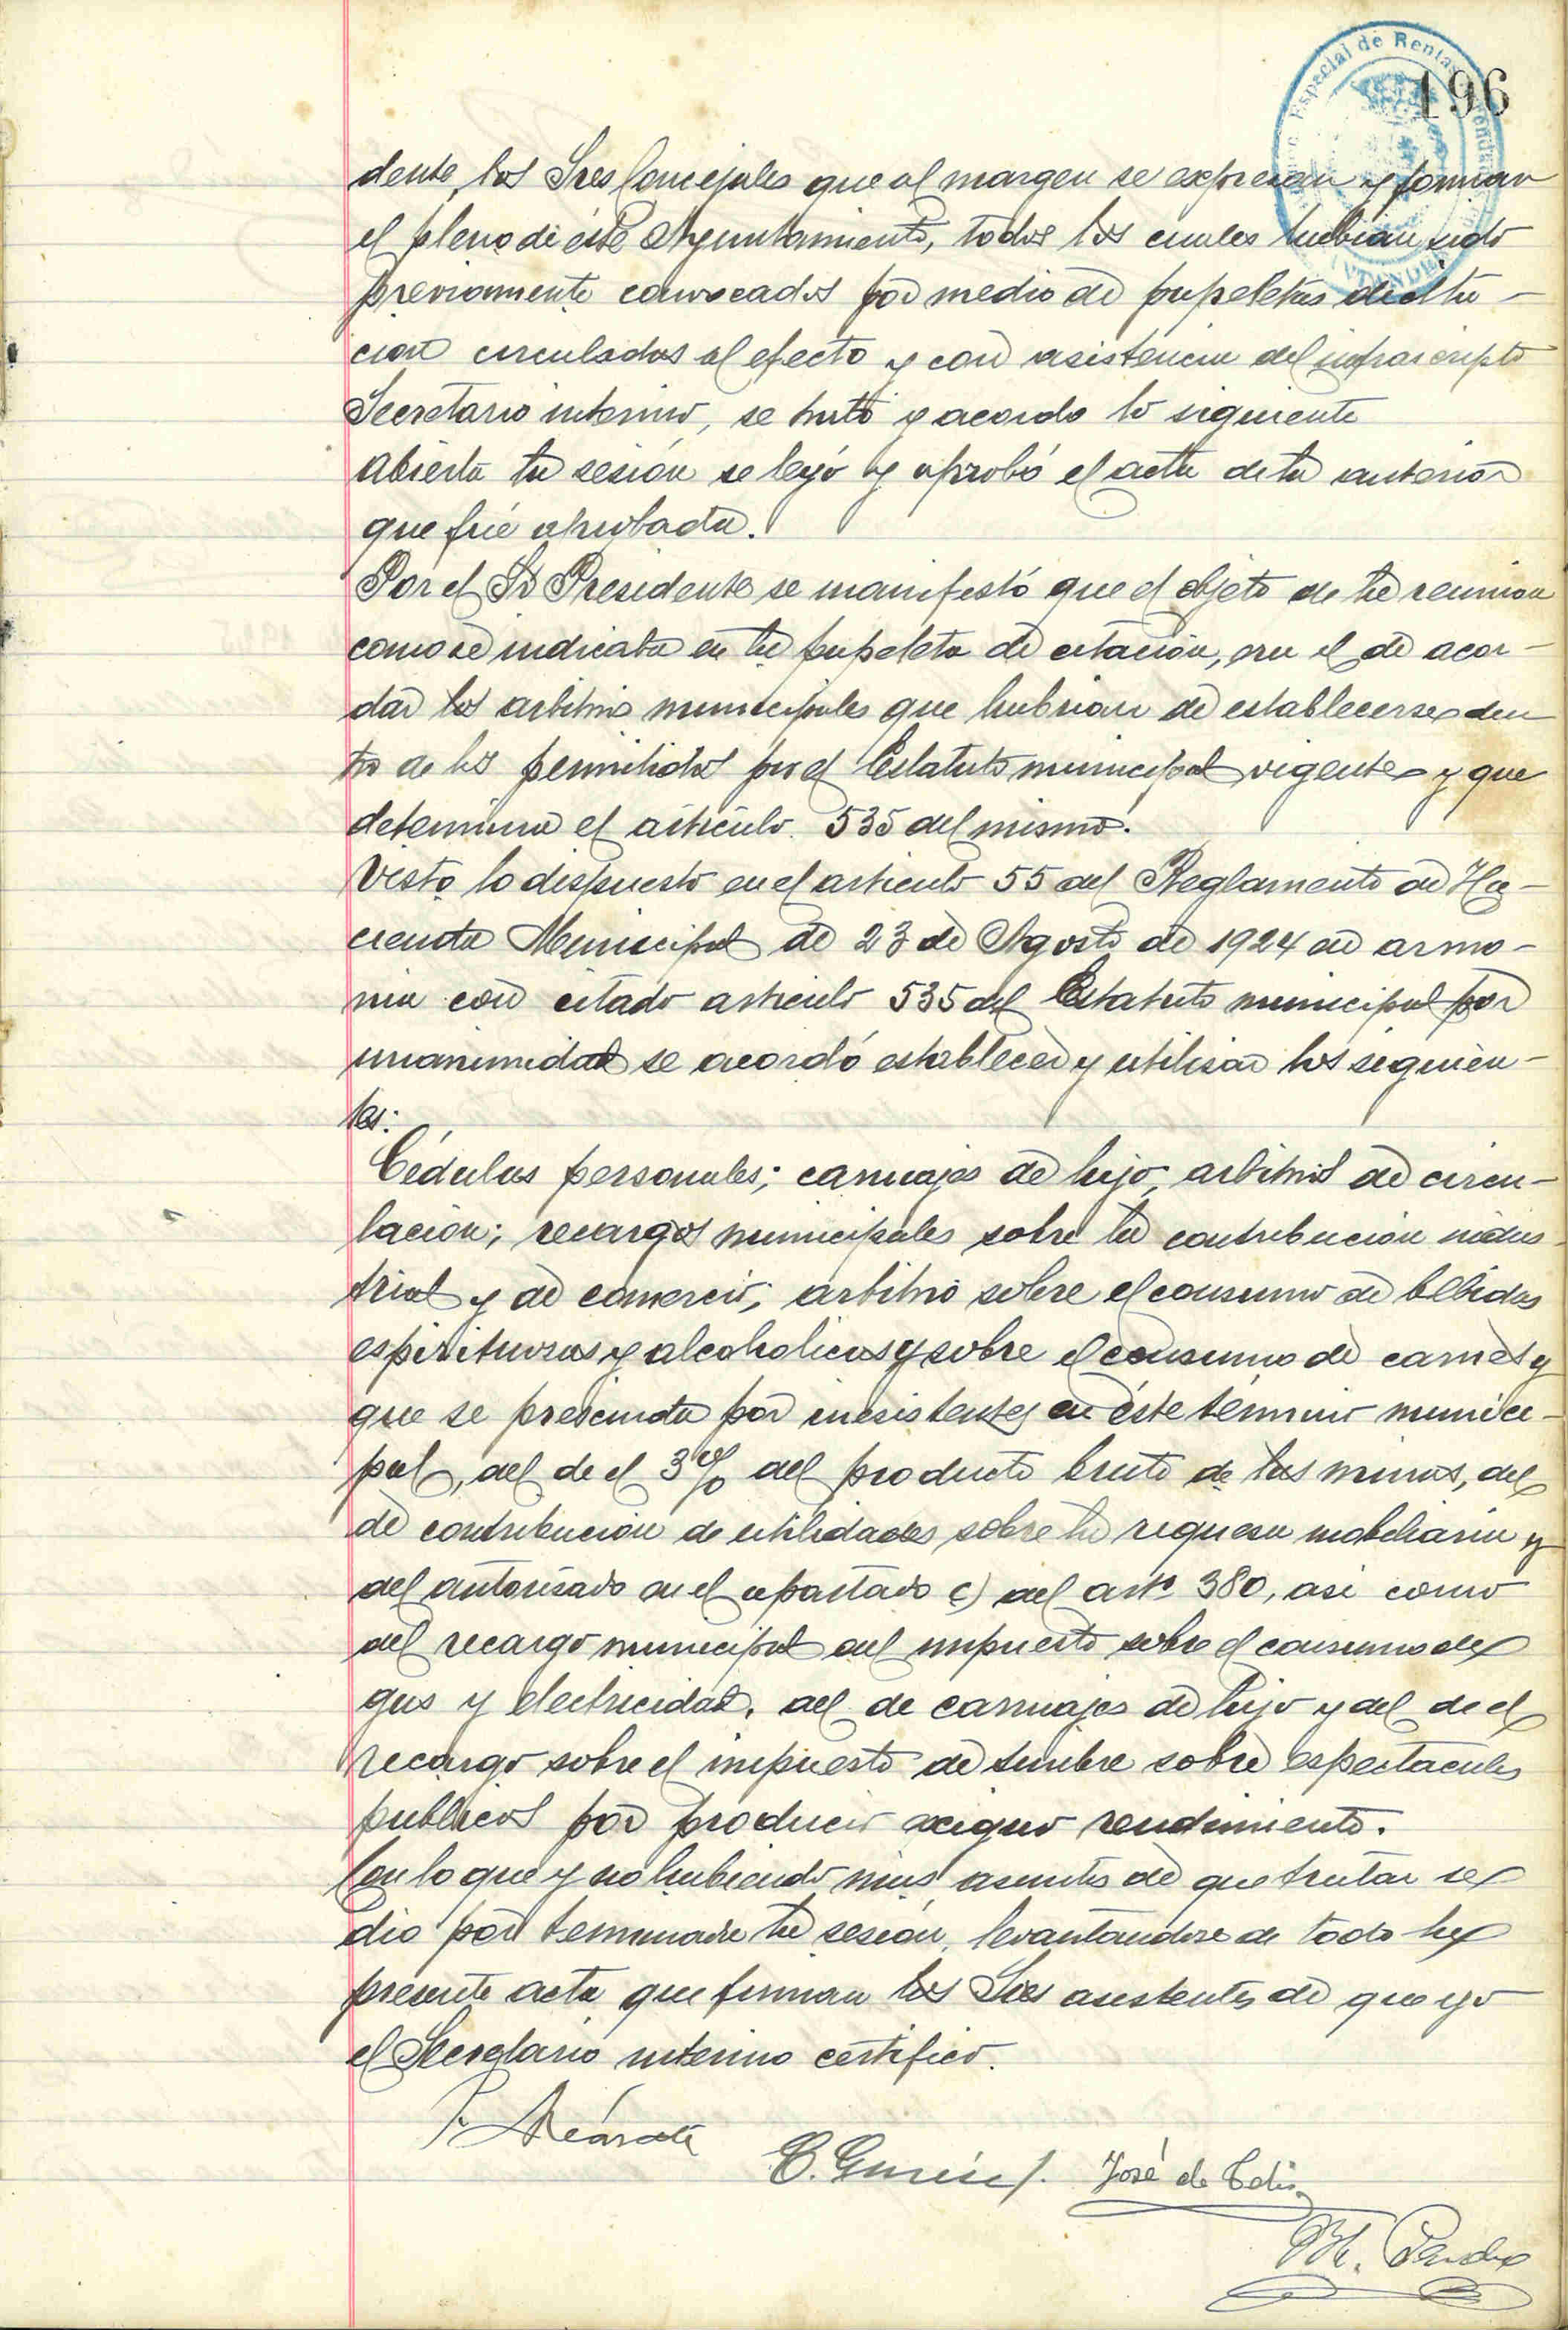 Especial de Rentas
196
dente, los Sres Concejales que al margen se expresan y forman
el pleno de éste Ayuntamiento, todos los cuales habian sido
previamente convocados por medio de papeletas de cita-
cion circuladas al efecto y con asistencia del infrascripto
Secretario interino, se trató y acordo lo siguiente
Abierta la sesión se leyó y aprobó el acta de la anterior
que fué aprobada.
Por el Sr Presidente se manifestó que el objeto de la reunion
como se indicaba en la papeleta de citación, era el de acor-
dar los arbitrios municipales que habrian de establecerse den
tro de los permitidos por el Estatuto municipal vigente y que
determina el artículo 535 del mismo.
Visto lo dispuesto en el articulo 55 del Reglamento de Ha-
cienda Municipal de 23 de Agosto de 1924 en armo-
nia con citado articulo 535 del Estatuto municipal por
unanimidad se acordó establecer y utilisar los siguien-
tes:
Cédulas personales; carruajes de lujo, arbitrios de circu-
lación; recargos municipales sobre la contribucion indus
trial y de comercio; arbitrio sobre el consumo de bebidas
espirituosas y alcoholicas y sobre el consumo de carnes y
que se prescinda por inesistentes en éste término munici-
pal, del de el 3% del producto bruto de las minas, del
de contribución de utilidades sobre la riquesa mobiliaria y
del autorisado en el apartado c) del artº 380, asi como
del recargo municipal del impuesto sobre el consumo de
gas y electricidad, del de carruajes de lujo y del de el
recargo sobre el impuesto de timbre sobre espectaculos
publicos por producir exiguo rendimiento.
Con lo que y no habiendo mas asuntos de que tratar se
dio por terminada la sesión, levantandose de todo la
presente acta que firman los Sres asistentes de que yo
el Secretario interino certifico.
José de Celis
M.